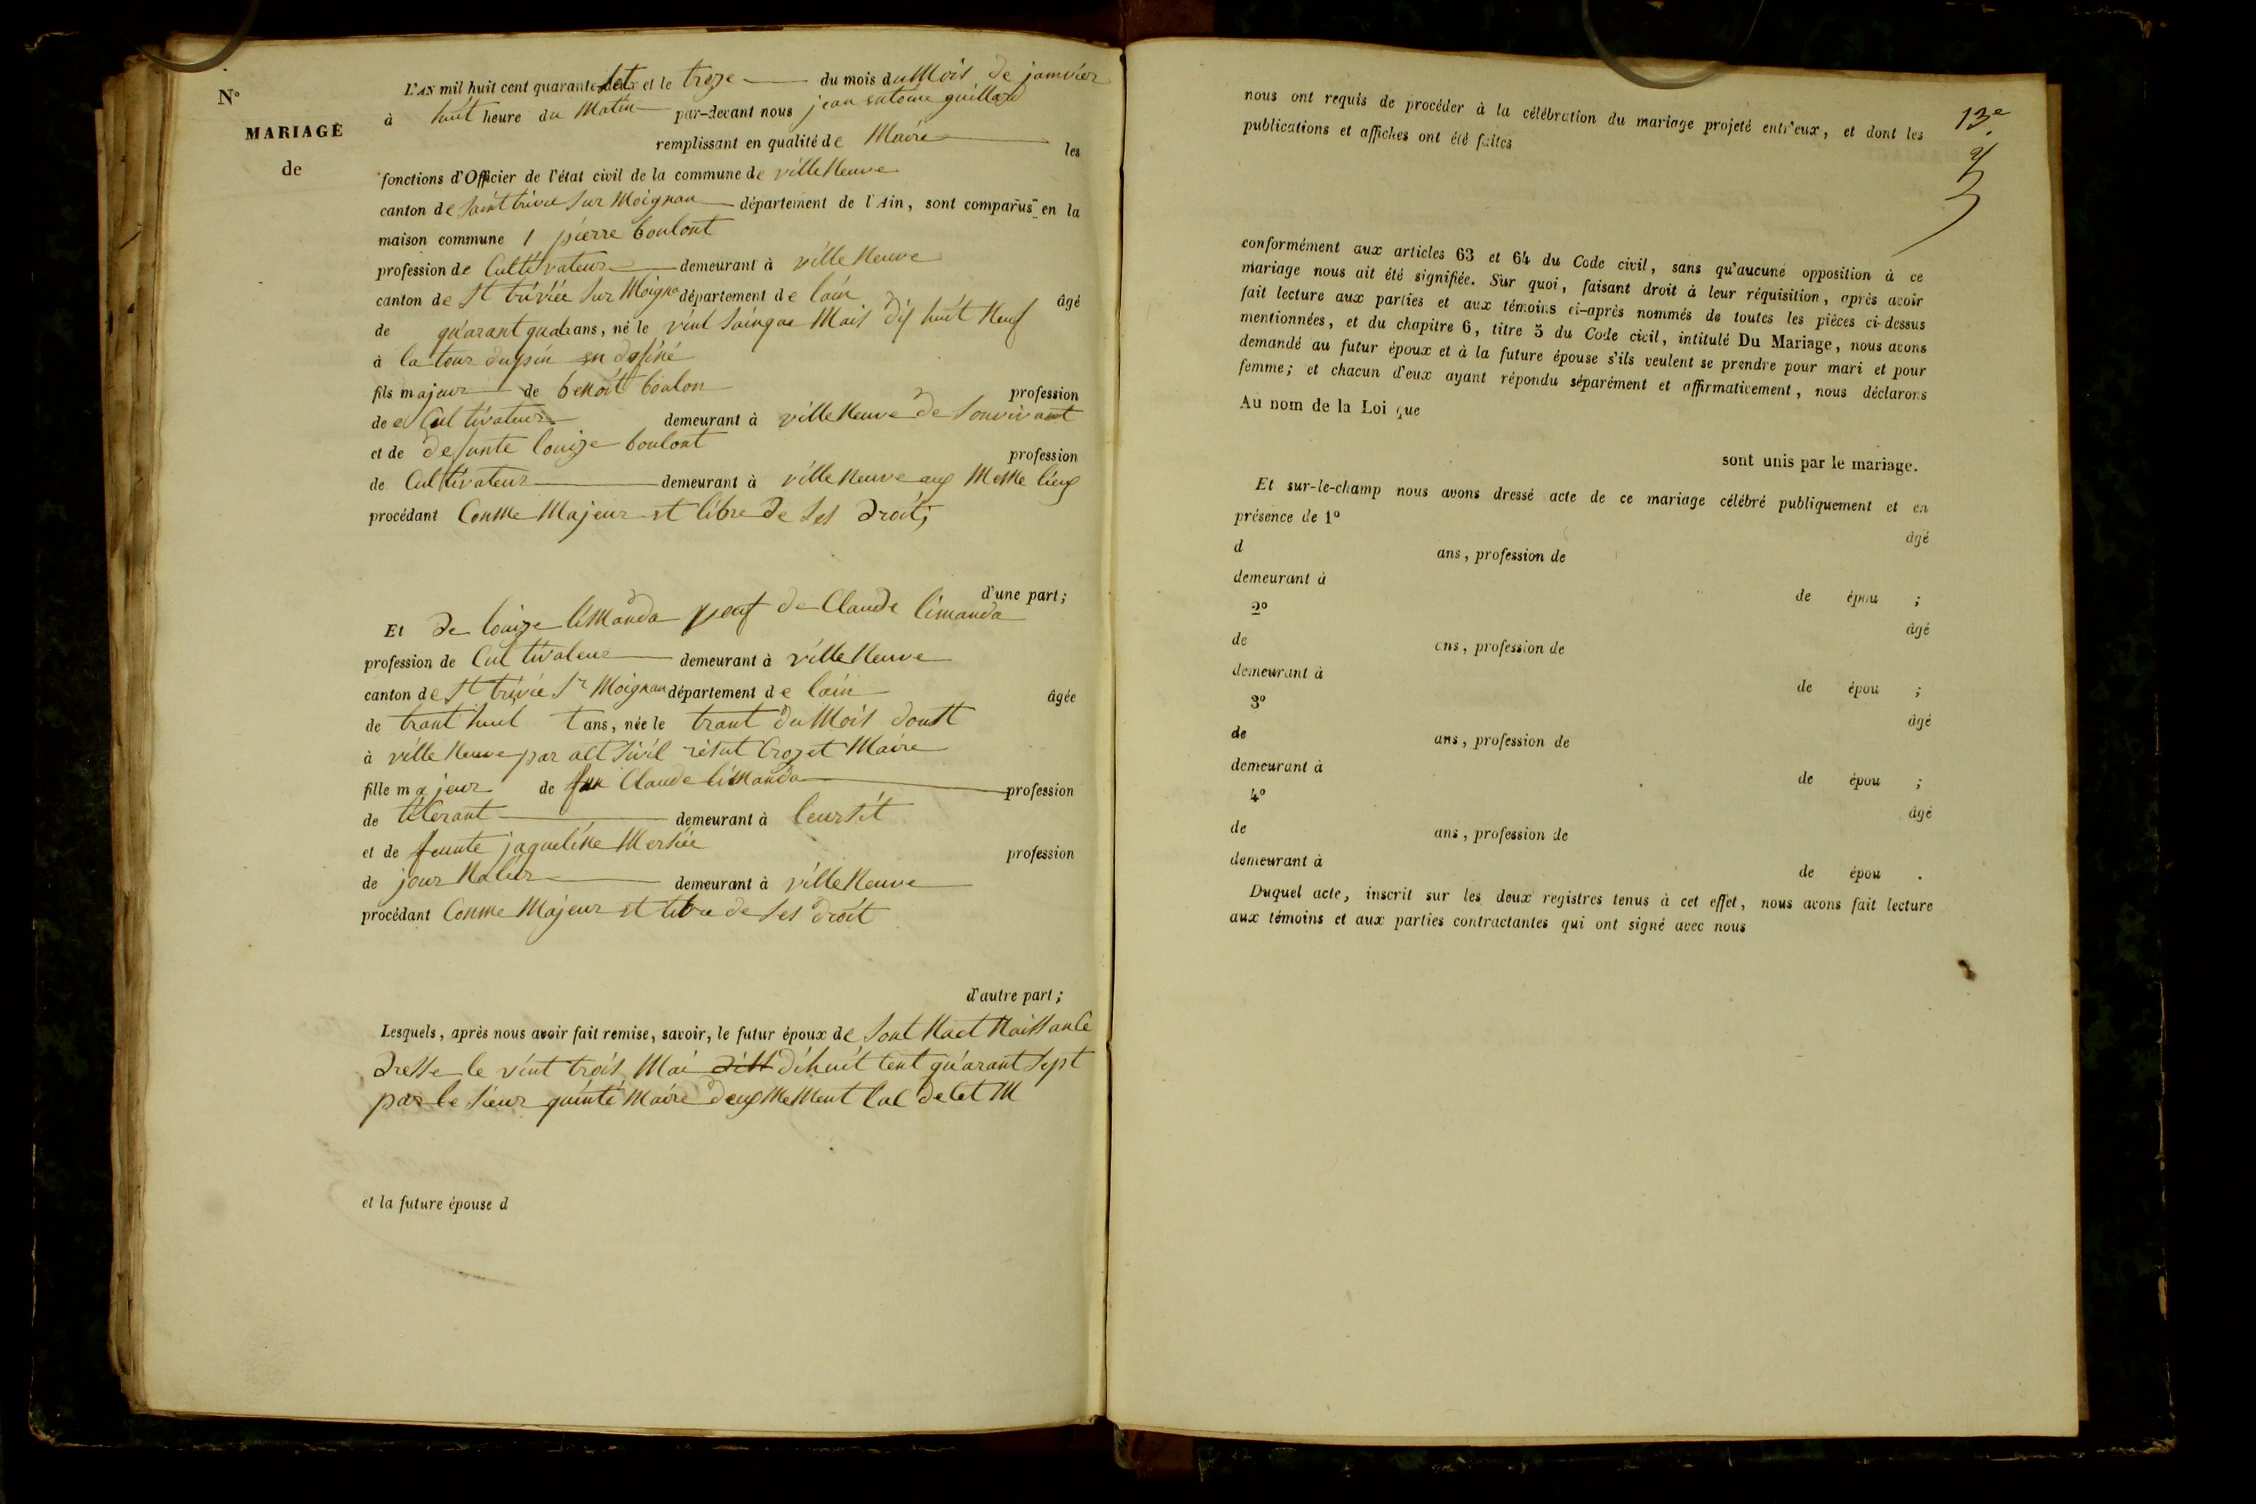 N°
MARIAGE
de
L'AN mil huit cent quarante set et le treze du mois du Mois de janvier
à huit heure du Matin par-devant nous jean entoine guillard
remplissant en qualité de Maire les
fonctions d'Officier de l'état civil de la commune de ville Neuve
canton de saint trivie sur Moignan département de l'Ain, sont comparus en la
maison commune 1 pierre boulont
profession de Cultivateur demeurant à ville Neuve
canton de St trivié sur Moigna département de lain âgé
de quarant quatr ans, né le vint sainq Mais dis huit Neuf
à la tour dupin en dofiné
fils majeur de benoit boulon profession
de Cultivateur demeurant à ville Neuve de sonvivant
et de defunte louize boulont profession
de Cultivateur demeurant à ville Neuve aux Meme lieux
procédant Comme Majeur et libre de ses droits
d'une part;
Et de louize limanda de Claude limanda
profession de Cultivateur demeurant à ville Neuve
canton de St trivié Sr Moignan département de lain âgée
de trant huit t ans, née le trant du Mois doutt
à ville Neuve par act sivil Maire
fille majeur de Claude limanda profession
de tiserant demeurant à leursit
et de jaqueline Mersiée profession
de jour Nalier demeurant à ville Neuve
procédant Comme Majeur et libre de ses droit
d'autre part;
Lesquels, après nous avoir fait remise, savoir, le futur époux de sont Nact Naissance
dresse le vint trois Mai dihuit cent quarant sept
par le sieur quinté Maire deuxMeMent lac de cet M
et la future épouse d
13e
nous ont requis de procéder à la célébration du mariage projeté entr'eux, et dont les
publications et affiches ont été faites
conformément aux articles 63 et 64 du Code civil, sans qu'aucune opposition à ce
mariage nous ait été signifiée. Sur quoi, faisant droit à leur réquisition, après avoir
fait lecture aux parties et aux témoins ci-après nommés de toutes les pièces ci-dessus
mentionnées, et du chapitre 6, titre 5 du Code civil, intitulé Du Mariage, nous avons
demandé au futur époux et à la future épouse s'ils veulent se prendre pour mari et pour
femme; et chacun d'eux ayant répondu séparément et affirmativement, nous déclarons
Au nom de la Loi que
sont unis par le mariage.
Et sur-le-champ nous avons dressé acte de ce mariage célébré publiquement et en
présence de 1° âgé
d ans, profession de
demeurant à de épou ;
2° âgé
de ans, profession de
demeurant à de épou ;
3° âgé
de ans, profession de
demeurant à de épou ;
4° âgé
de ans, profession de
demeurant à de épou .
Duquel acte, inscrit sur les deux registres tenus à cet effet, nous avons fait lecture
aux témoins et aux parties contractantes qui ont signé avec nous